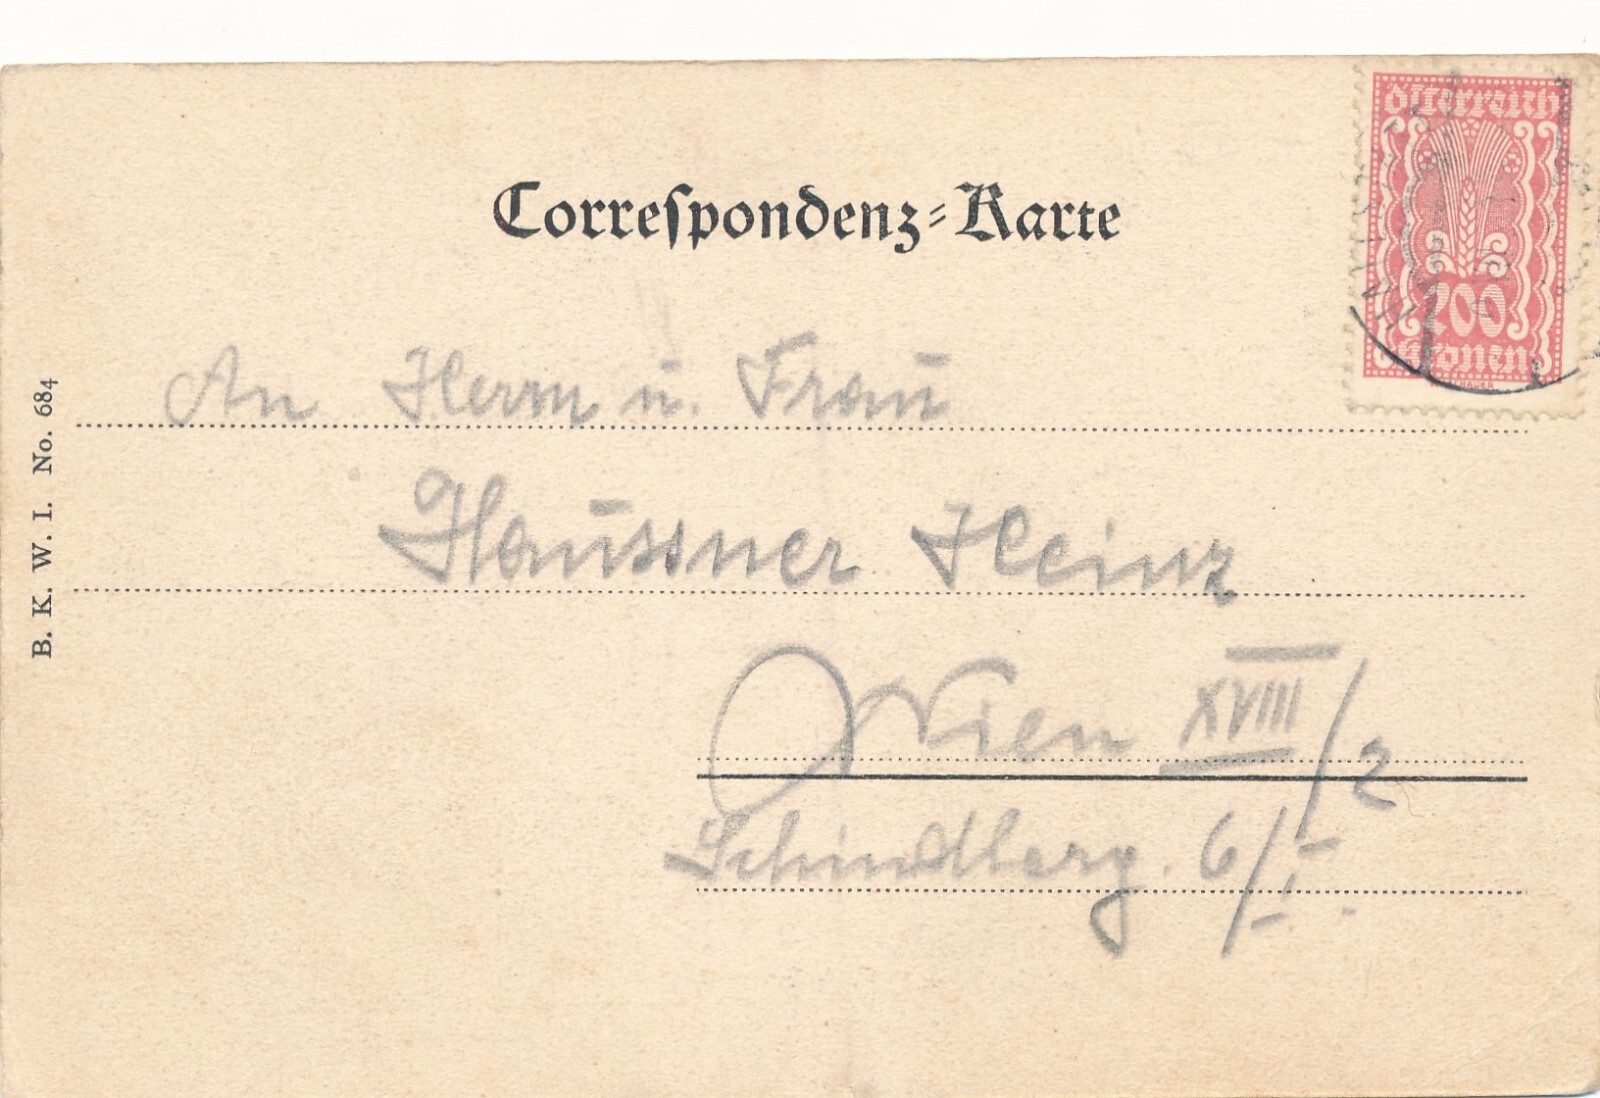 Correspondenz-Karte
österreich
200
Kronen
An Herrn u. Frau
Haussner Heinz
Wien XVIII/2
Schindlerg. 6/I.
B. K. W. I. No. 684